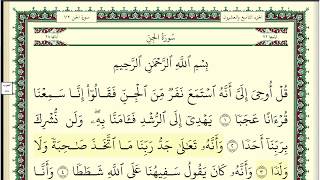 سُورَةُ الجِنِّ
بِسْمِ اللَّهِ الرَّحْمَٰنِ الرَّحِيمِ
قُلْ أُوحِيَ إِلَيَّ أَنَّهُ اسْتَمَعَ نَفَرٌ مِّنَ الْجِنِّ فَقَالُوٓا۟ إِنَّا سَمِعْنَا
قُرْءَانًا عَجَبًا ١ يَهْدِىٓ إِلَى ٱلرُّشْدِ فَـَٔامَنَّا بِهِۦ وَلَن نُّشْرِكَ
بِرَبِّنَآ أَحَدًا ٢ وَأَنَّهُۥ تَعَٰلَىٰ جَدُّ رَبِّنَا مَا ٱتَّخَذَ صَٰحِبَةً وَلَا
وَلَدًا ٣ وَأَنَّهُۥ كَانَ يَقُولُ سَفِيهُنَا عَلَى ٱللَّهِ شَطَطًا ٤